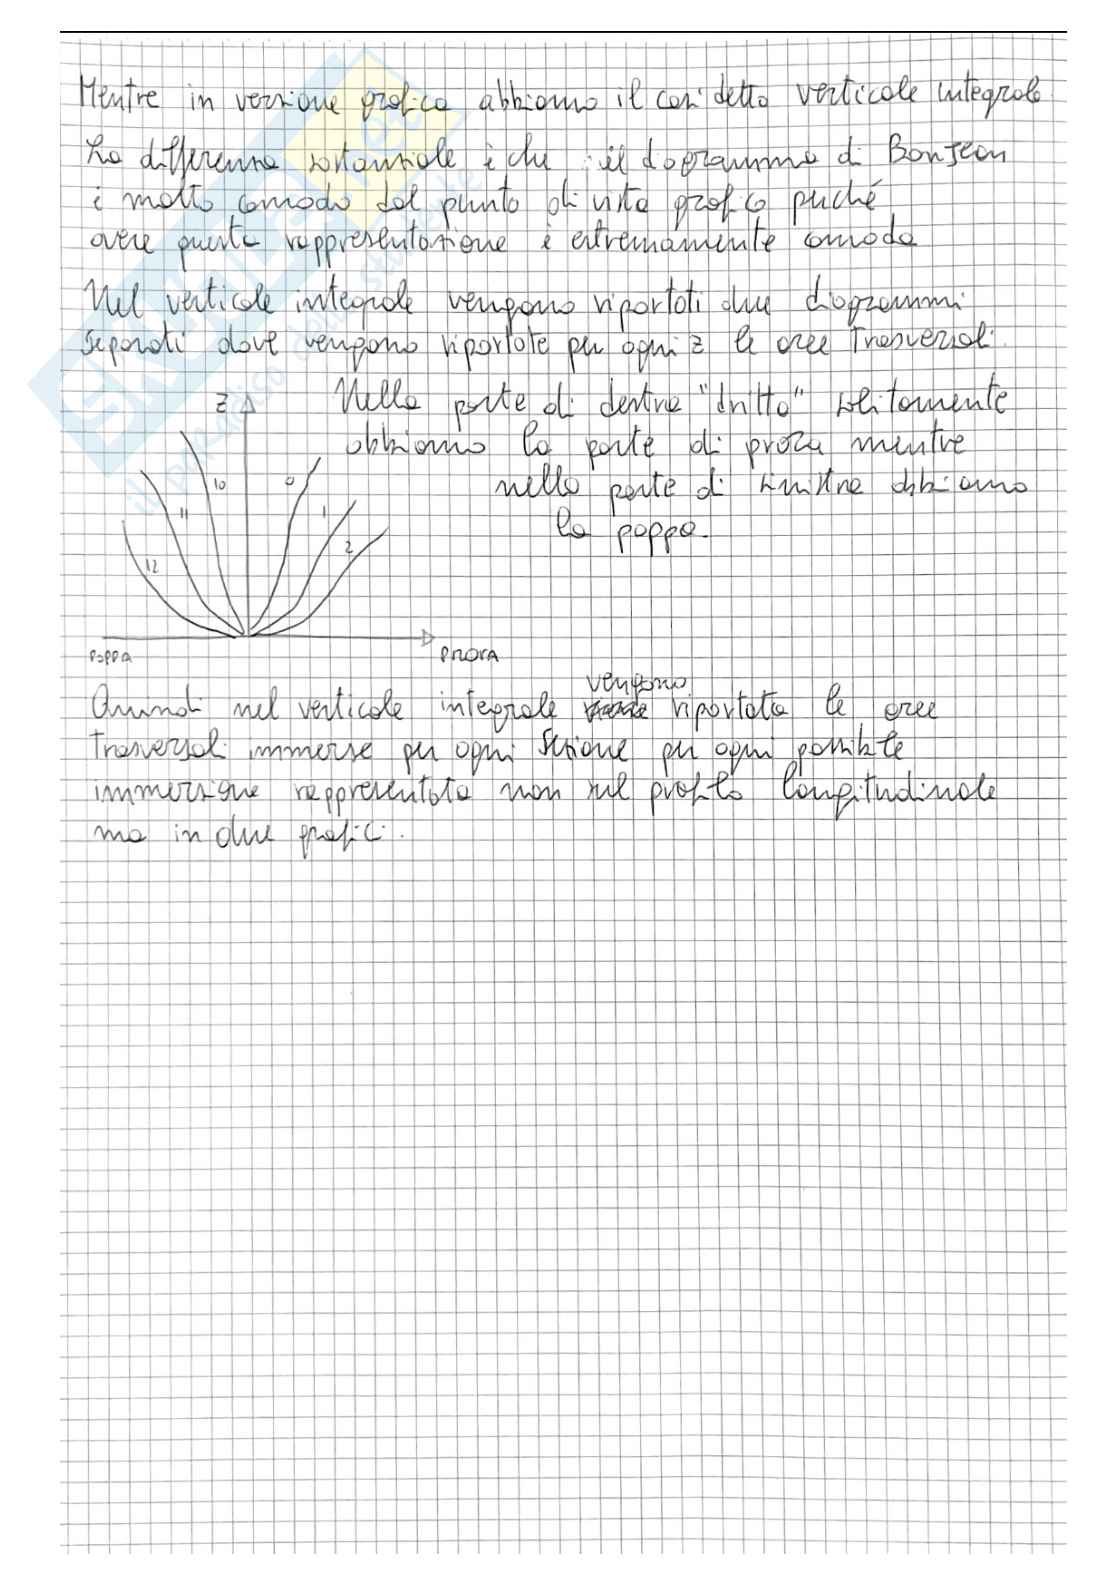 Mentre in versione grafica abbiamo il così detto verticale integrale
La differenza sostanziale è che il diagramma di Bonjean
è molto comodo dal punto di vista grafico perché
avere questa rappresentazione è estremamente comoda
Nel verticale integrale vengono riportati due diagrammi
separati dove vengono riportate per ogni z le aree trasversali.
z
Nella parte di destra "dritta" solitamente
abbiamo la parte di prora mentre
nella parte di sinistra abbiamo
la poppa.
12 11 10 0 1 2
POPPA PRORA
vengono
Quindi nel verticale integrale riportata le aree
trasversali immerse per ogni sezione per ogni possibile
immersione rappresentata non sul profilo longitudinale
ma in due grafici.
SKUOLA.net
il paradiso dello studente